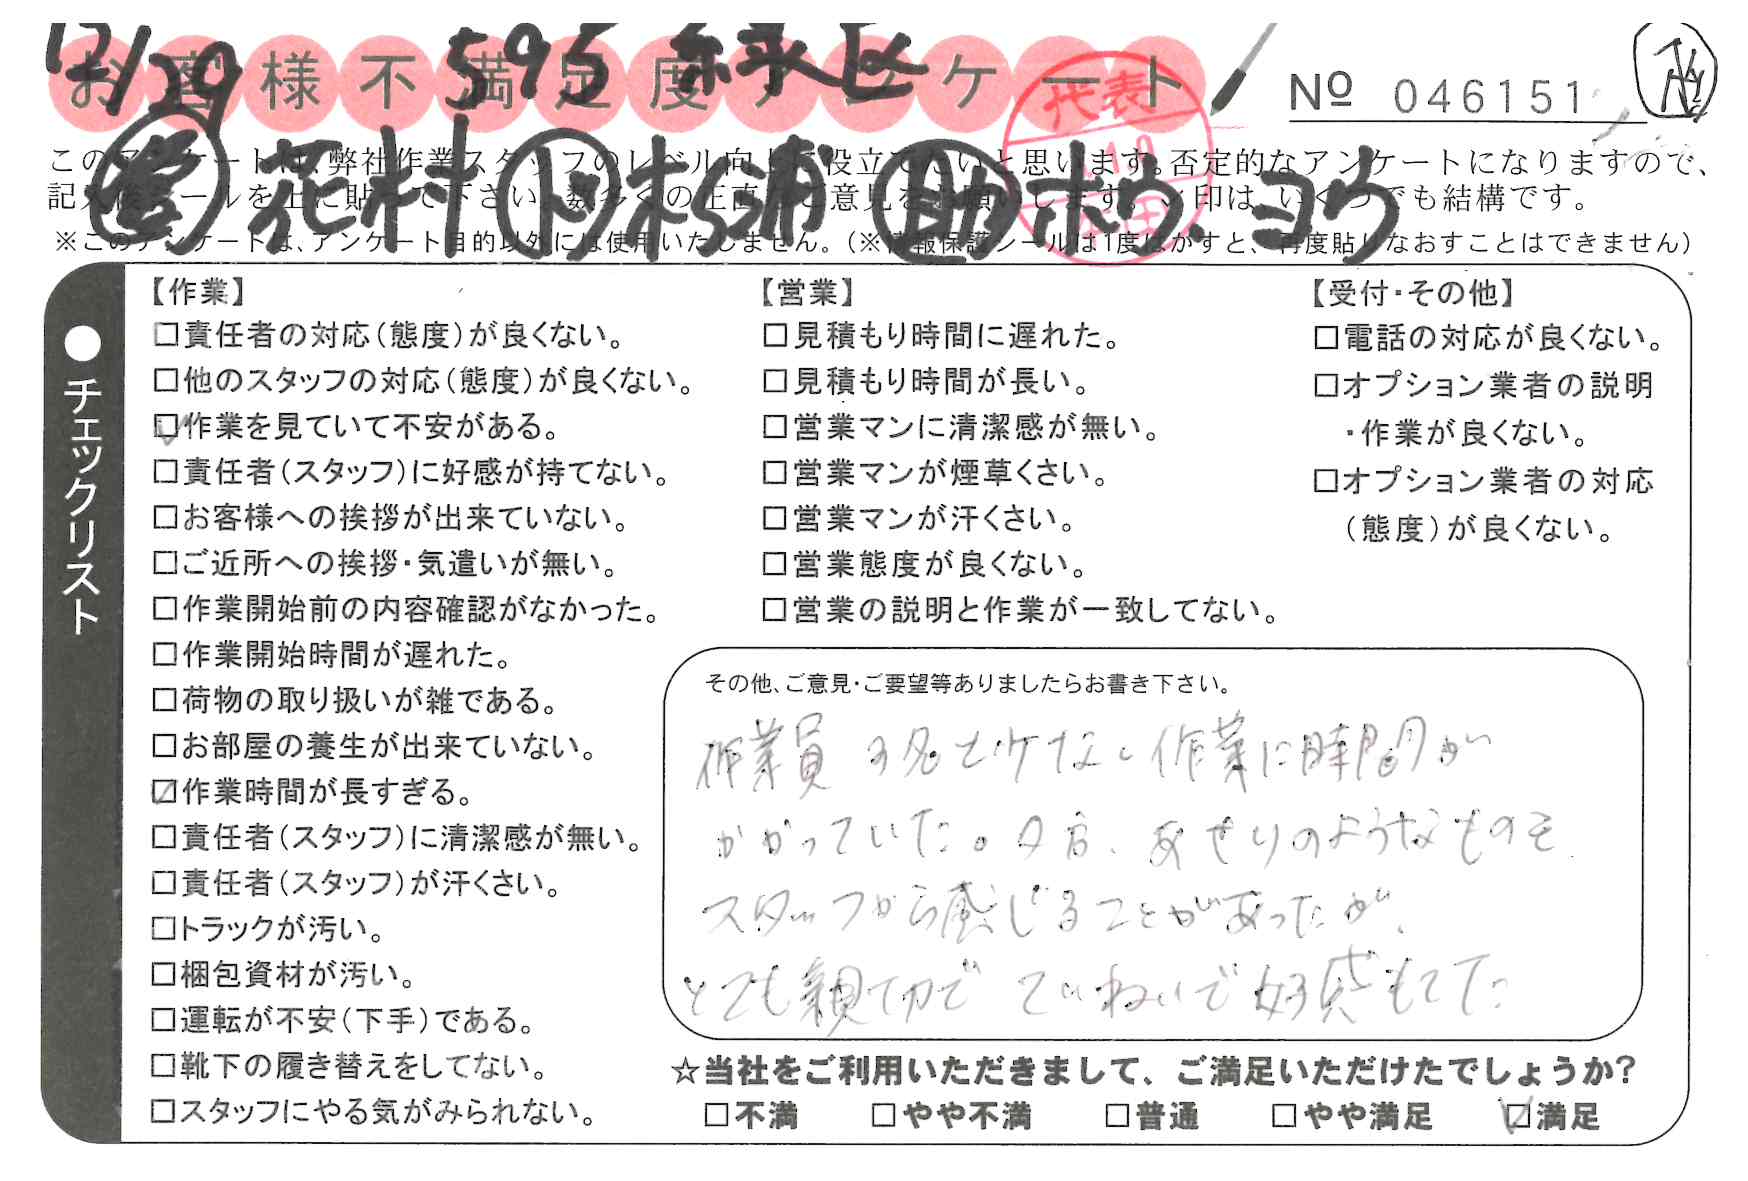 12/29 595 緑区
お客様不満足度アンケート
No 046151
代表
営 花村 ト 杉浦 助 ボウ、ヨウ
このアンケートは、弊社作業スタッフのレベル向上に役立てたいと思います。否定的なアンケートになりますので、
記入後シールを上に貼って下さい。数多くの正直なご意見をお願いします。✓印は、いくつでも結構です。
※このアンケートは、アンケート目的以外には使用いたしません。(※情報保護シールは1度はがすと、再度貼りなおすことはできません)
●チェックリスト
【作業】
□責任者の対応(態度)が良くない。
□他のスタッフの対応(態度)が良くない。
☑作業を見ていて不安がある。
□責任者(スタッフ)に好感が持てない。
□お客様への挨拶が出来ていない。
□ご近所への挨拶・気遣いが無い。
□作業開始前の内容確認がなかった。
□作業開始時間が遅れた。
□荷物の取り扱いが雑である。
□お部屋の養生が出来ていない。
☑作業時間が長すぎる。
□責任者(スタッフ)に清潔感が無い。
□責任者(スタッフ)が汗くさい。
□トラックが汚い。
□梱包資材が汚い。
□運転が不安(下手)である。
□靴下の履き替えをしてない。
□スタッフにやる気がみられない。
【営業】
□見積もり時間に遅れた。
□見積もり時間が長い。
□営業マンに清潔感が無い。
□営業マンが煙草くさい。
□営業マンが汗くさい。
□営業態度が良くない。
□営業の説明と作業が一致してない。
【受付・その他】
□電話の対応が良くない。
□オプション業者の説明
・作業が良くない。
□オプション業者の対応
(態度)が良くない。
その他、ご意見・ご要望等ありましたらお書き下さい。
作業員 が少なく 作業に時間が
かかっていた。夕方、あせりのようなものを
スタッフから感じることがあったが、
とても親切で ていねいで好感もてた
☆当社をご利用いただきまして、ご満足いただけたでしょうか?
□不満 □やや不満 □普通 □やや満足 ☑満足